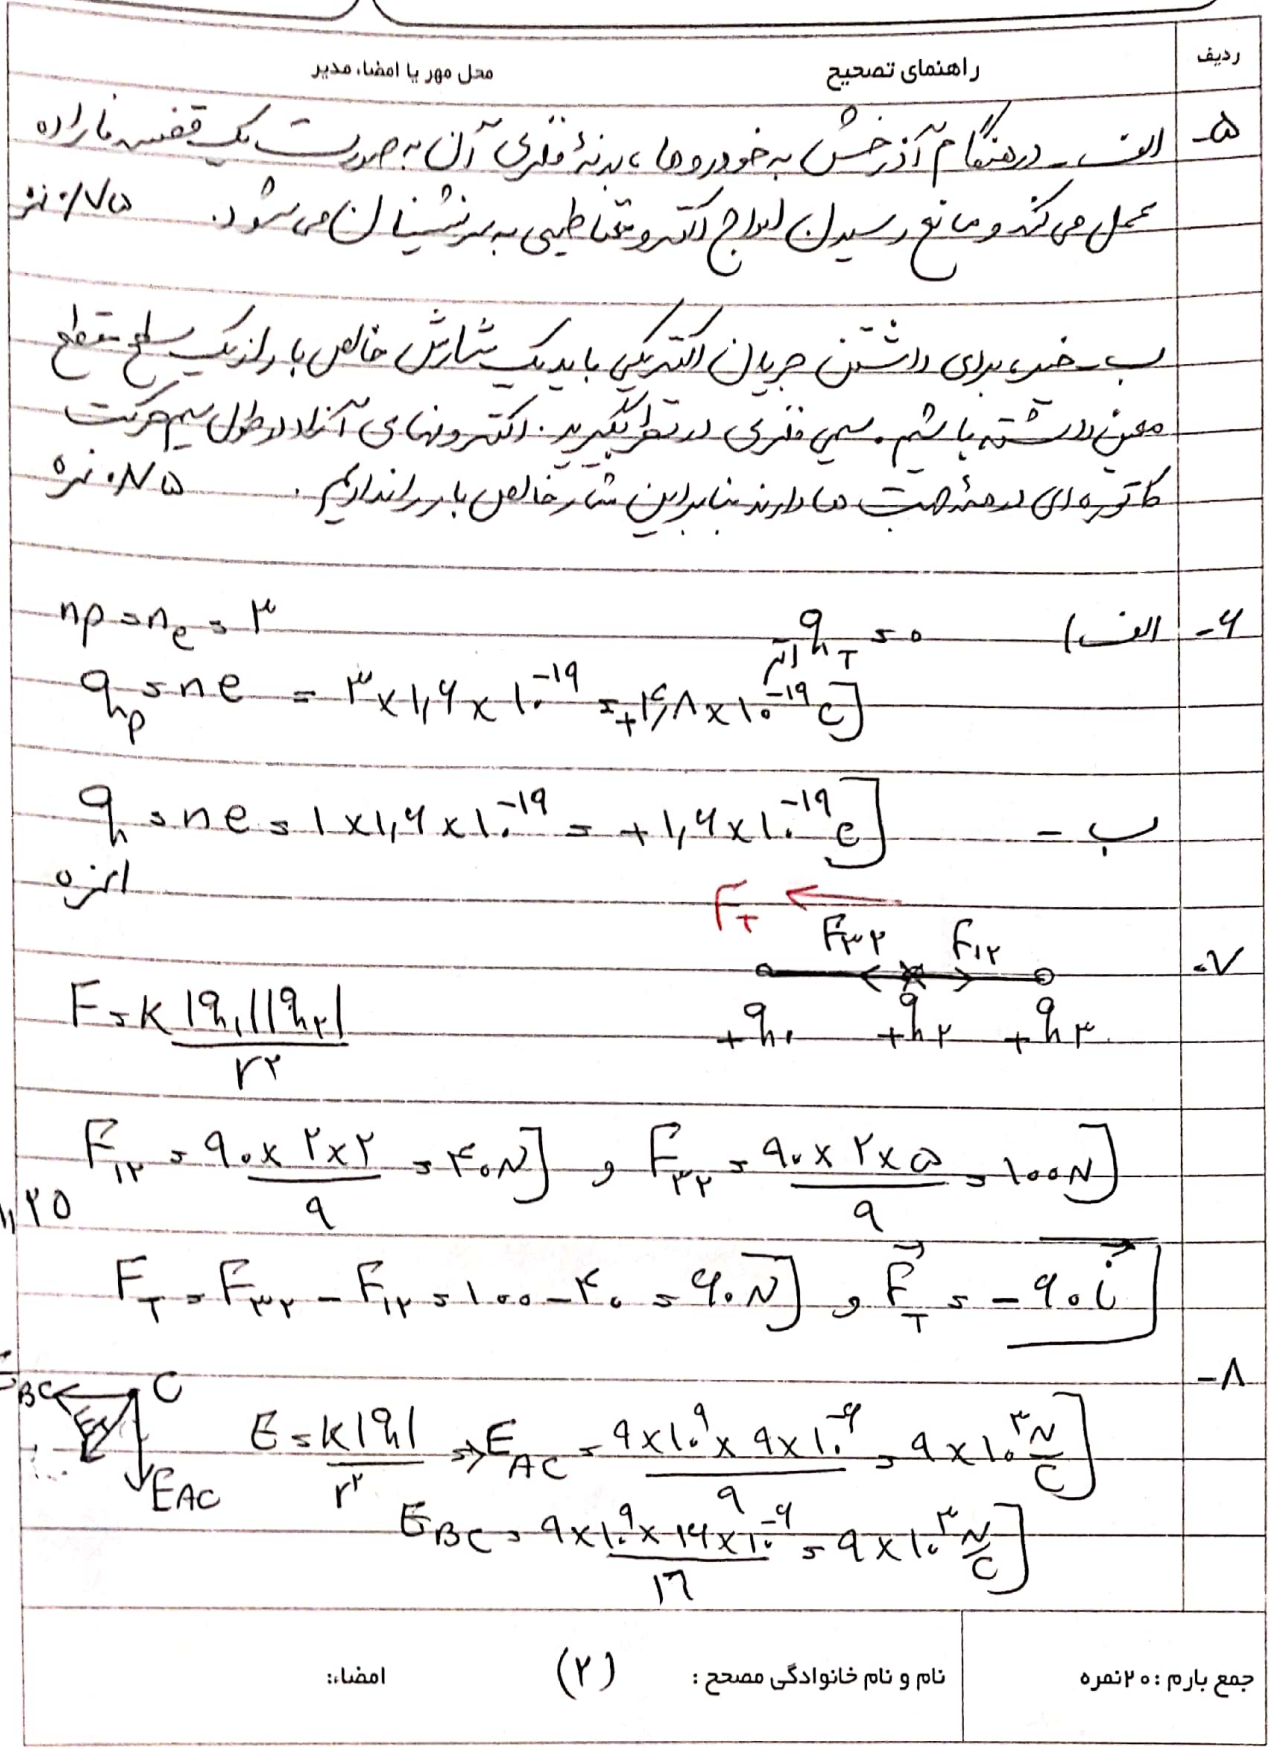 ردیف
راهنمای تصحیح
محل مهر یا امضاء مدیر
۵- الف - در هنگام آذرخش به خودروها، بدنهٔ فلزی آن به صورت یک قفس فاراده
عمل می‌کند و مانع رسیدن امواج الکترومغناطیسی به سرنشینان می‌شود. ۰/۷۵
ب - خیر، برای داشتن جریان الکتریکی باید یک شارش خالص بار از یک سطح مقطع
معین داشته باشیم. سیم فلزی در نظر بگیرید. الکترونهای آزاد در طول سیم حرکت
کاتوره‌ای در همهٔ جهت‌ها دارند بنابراین شار خالص بار را نداریم. ۰/۷۵ نمره
۶- الف) q_T = ۰ اتم
np = n_e = ۳
q_p = ne = ۳ × ۱,۶ × ۱۰^-۱۹ = +۴,۸ × ۱۰^-۱۹ C
ب - q = ne = ۱ × ۱,۶ × ۱۰^-۱۹ = +۱,۶ × ۱۰^-۱۹ C
۱ نمره
F_T
۷- F_۳۲ F_۱۲
+q_۱ +q_۲ +q_۳
F = k |q_۱||q_۲| / r^۲
F_۱۲ = ۹۰ × ۲ × ۲ / ۹ = ۴۰ N و F_۳۲ = ۹۰ × ۲ × ۵ / ۹ = ۱۰۰ N
۱,۲۵
F_T = F_۳۲ - F_۱۲ = ۱۰۰ - ۴۰ = ۶۰ N و F_T = - ۶۰ i
۸-
BC C
E_T
E_AC
E = k|q| / r^۲ ⇒ E_AC = ۹ × ۱۰^۹ × ۹ × ۱۰^-۶ / ۹ = ۹ × ۱۰^۳ N/C
E_BC = ۹ × ۱۰^۹ × ۱۶ × ۱۰^-۶ / ۱۶ = ۹ × ۱۰^۳ N/C
جمع بارم : ۲۰ نمره
نام و نام خانوادگی مصحح :
(۲)
امضاء: